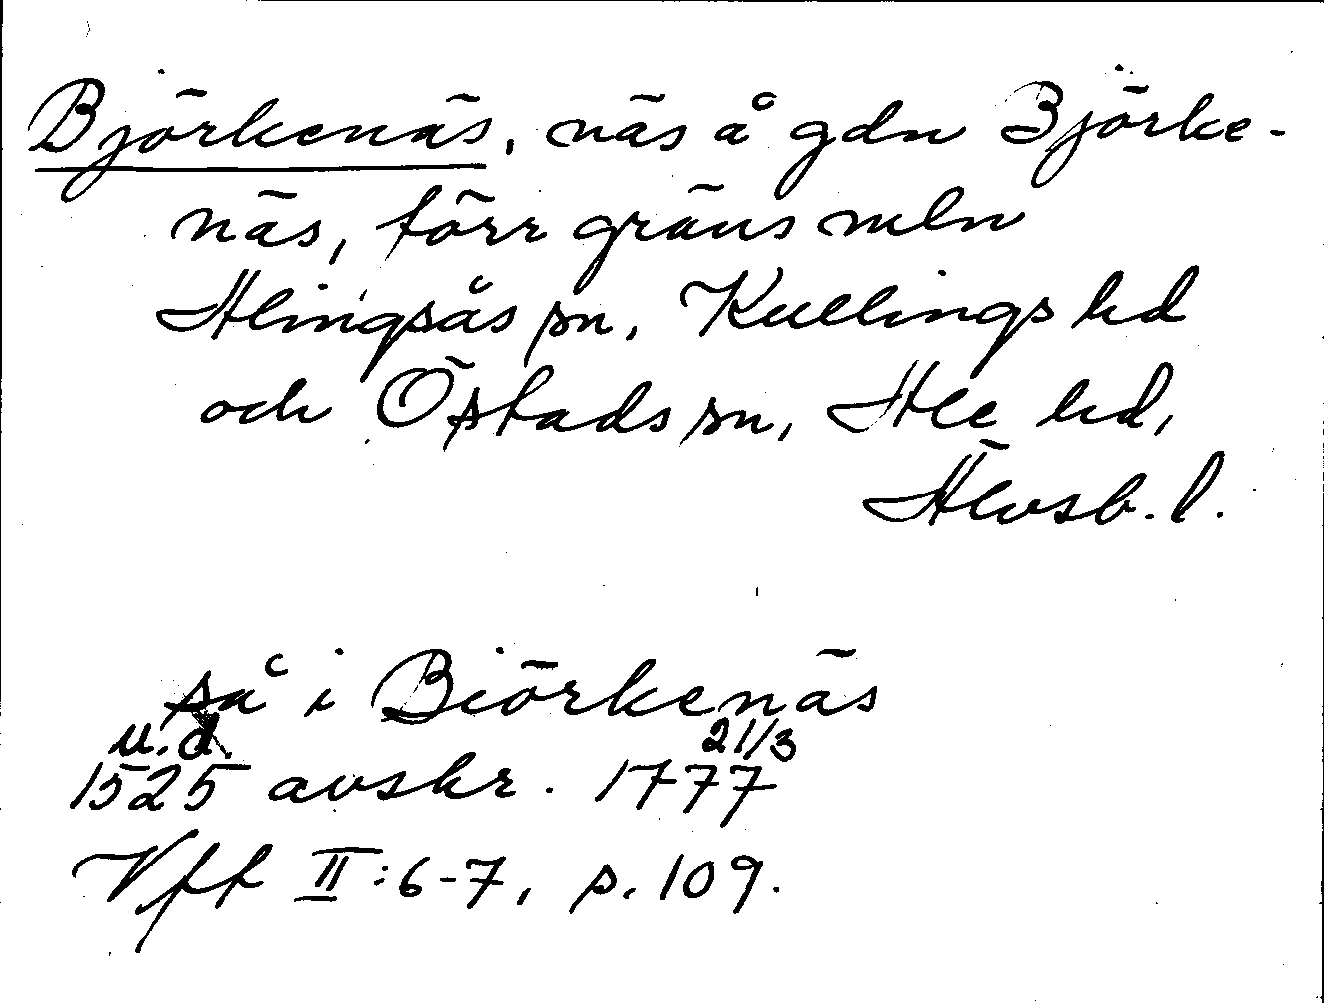 Björkenäs, näs å gdn Björke-
näs, förr gräns mln
Alingsås sn, Kullings hd
och Östads sn, Ale hd,
Älvsb. l.
så i Biörkenäs
u.d. 21/3
1525 avskr. 1777
Vff II:6-7, s. 109.